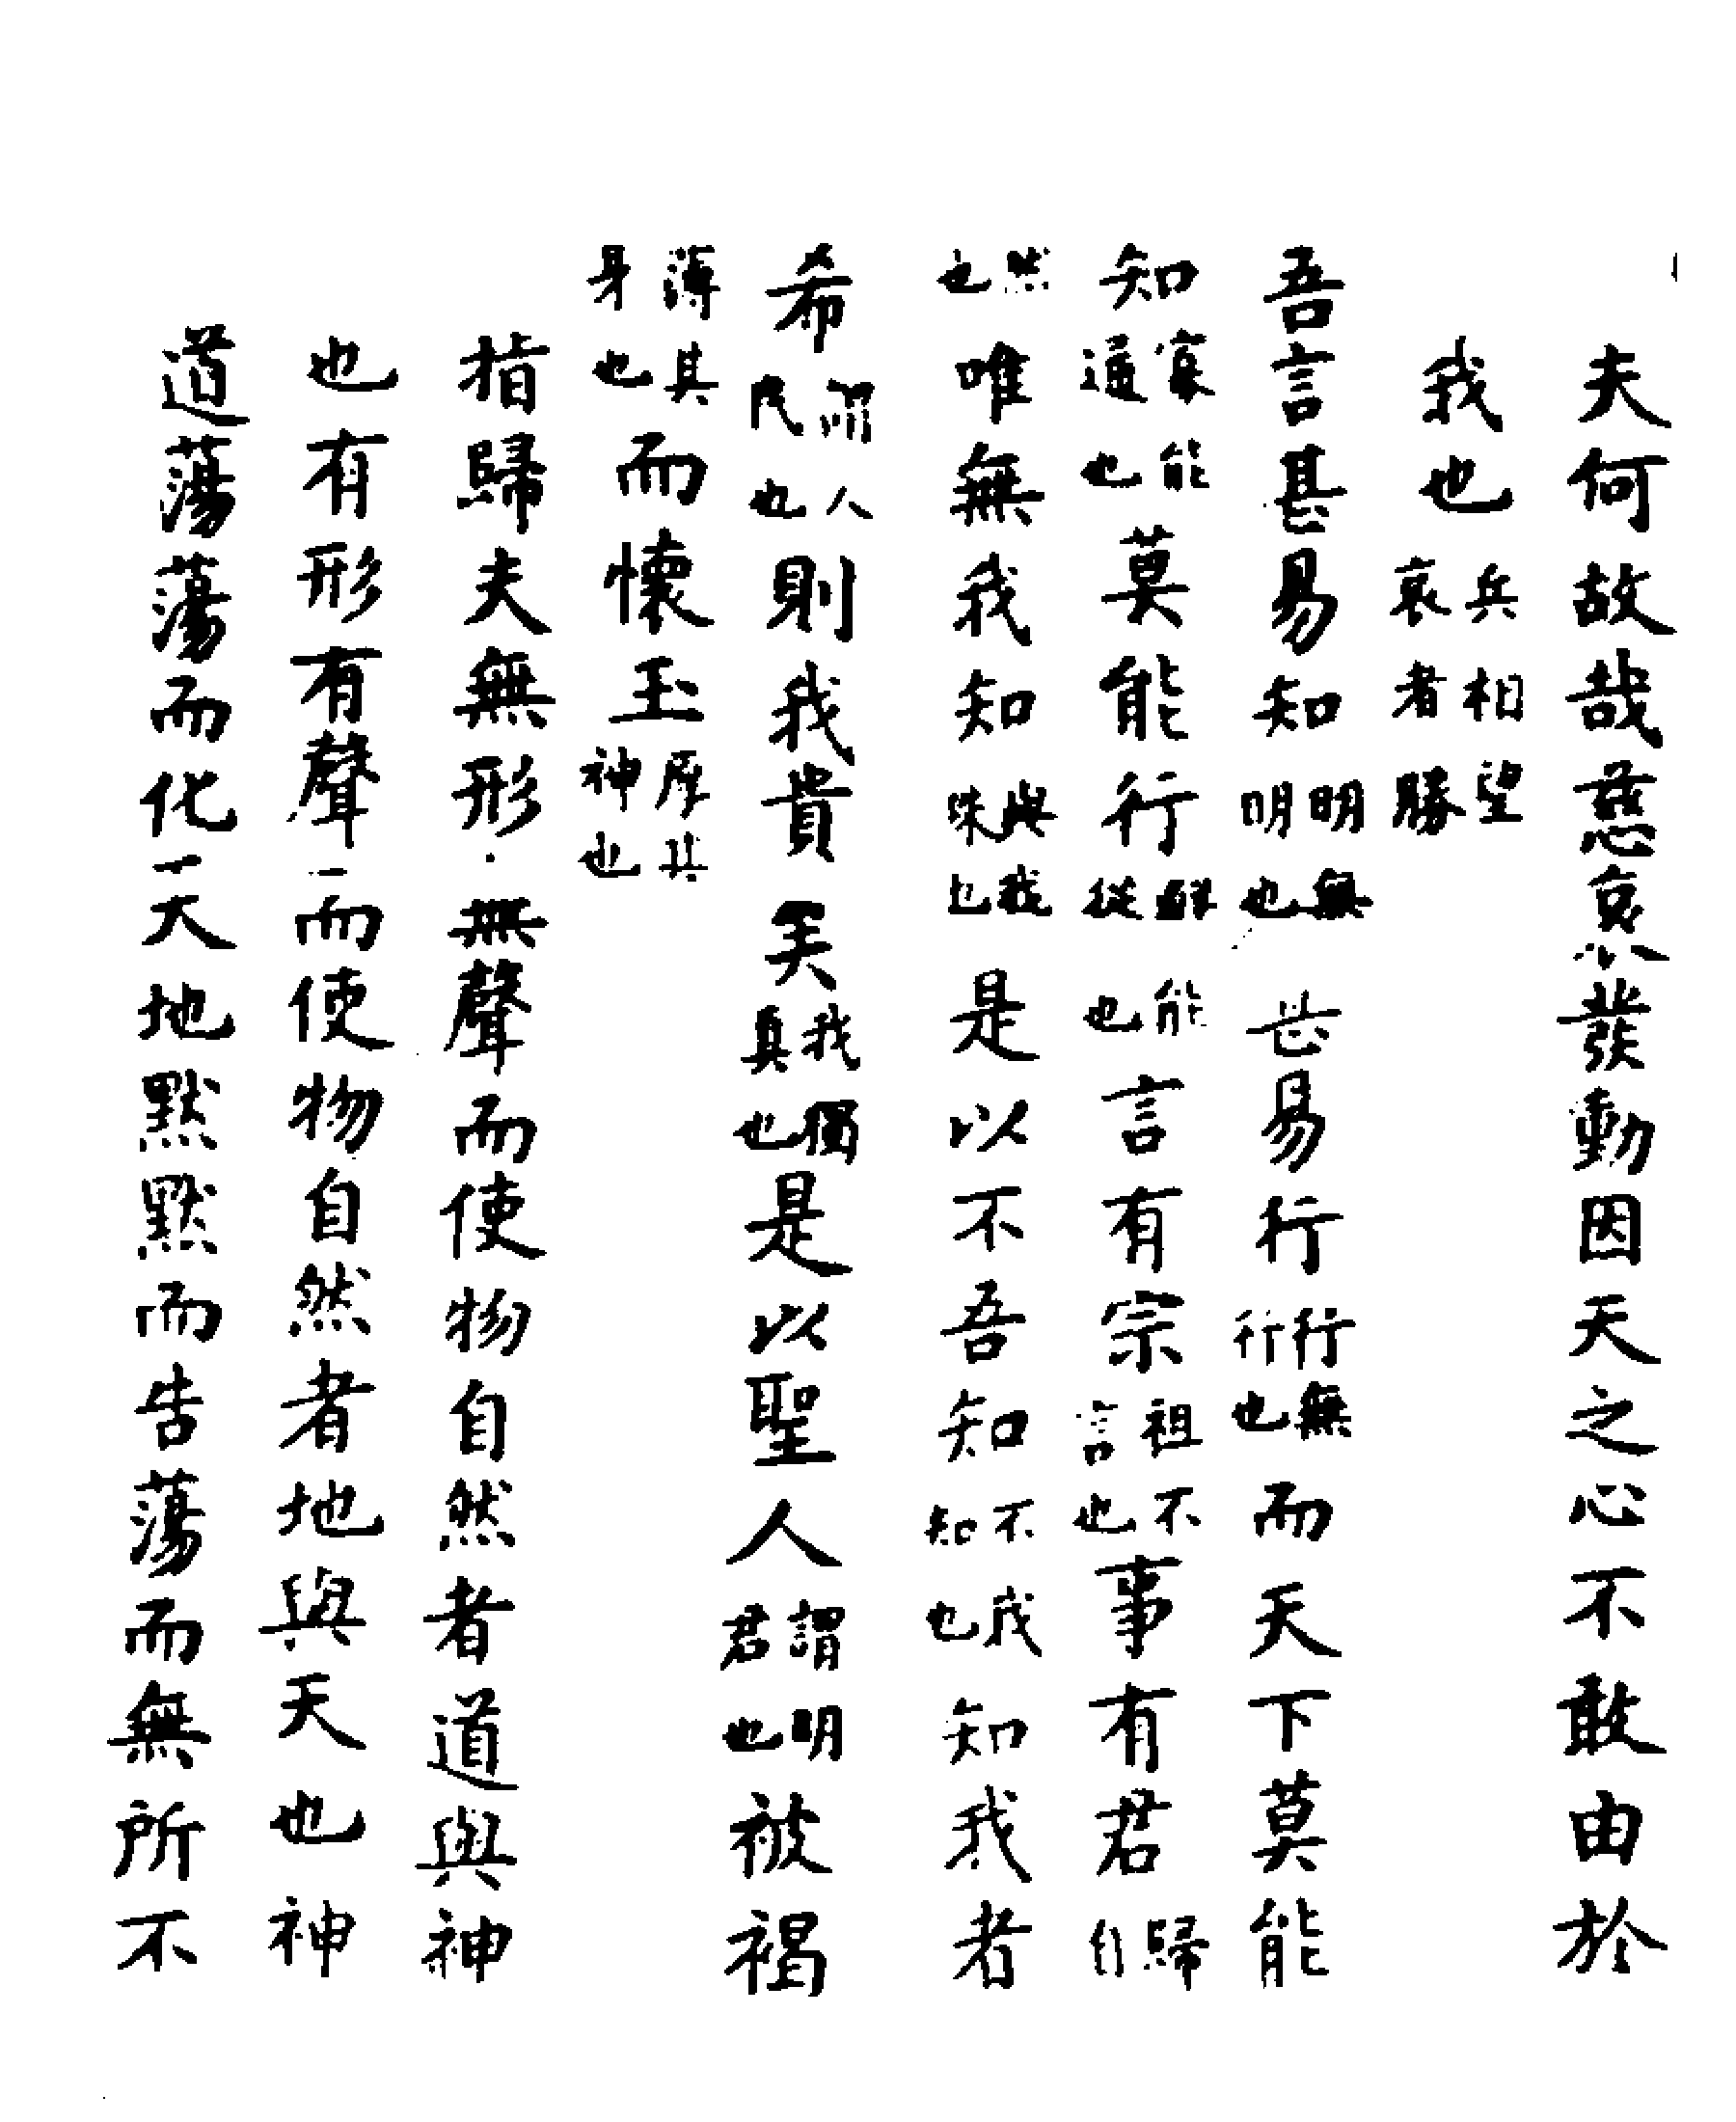 夫何故哉慈哀發動因天之心不敢由於
我也兵相望哀者勝
吾言甚易知明無明也甚易行行無行也而天下莫能
知寡能通也莫能行鮮能從也言有宗祖不言也事有君歸自
然也唯無我知與我殊也是以不吾知不我知也知我者
希謂人民也則我貴矣我獨真也是以聖人謂明君也被褐
薄其身也而懷玉厚其神也
指歸夫無形無聲而使物自然者道與神
也有形有聲而使物自然者地與天也神
道蕩蕩而化天地默默而告蕩而無所不